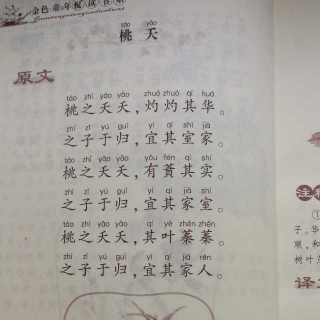 金色童年悦读书系
táo yāo
桃夭
原文
táo zhī yāo yāo zhuó zhuó qí huā
桃之夭夭，灼灼其华。
zhī zǐ yú guī yí qí shì jiā
之子于归，宜其室家。
táo zhī yāo yāo yǒu fén qí shí
桃之夭夭，有蕡其实。
zhī zǐ yú guī yí qí jiā shì
之子于归，宜其家室。
táo zhī yāo yāo qí yè zhēn zhēn
桃之夭夭，其叶蓁蓁。
zhī zǐ yú guī yí qí jiā rén
之子于归，宜其家人。
注
①
子。华
顺，和
树叶
译